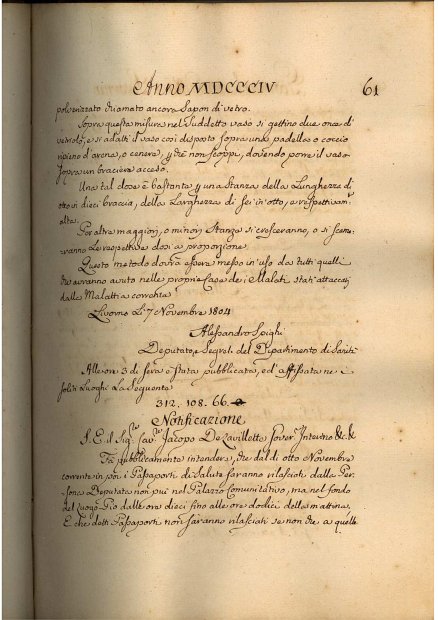 Anno MDCCCIV 61
polverizzato chiamato ancora Sapon di vetro.
Sopra questa misura nel Suddetto vaso si gettino due once di
vetriolo, e si adatti il vaso così disposto sopra una padella o coccio
ripieno d'arena, o cenere, che non scoppi, dovendo porre il vaso
sopra un braciere acceso.
Una tal dose è bastante una Stanza della Lunghezza di
otto in dieci braccia, della Larghezza di sei in otto, e respettivam.
alta.
Per altre maggiori, o minori Stanze si cresceranno, o si scem-
eranno Le respettive dosi a proporzione.
Questo metodo dovrà essere messo in uso da tutti quelli
che avranno avuto nelle proprie Case dei Malati stati attaccati
dalla Malattia corrente
Livorno Li 7 Novembre 1804
Alessandro Spighi
Deputato, e Segret. del Dipartimento di Sanità
Alle ore 3 di sera è stata pubblicata, ed affissata nei
soliti Luoghi La Seguente
312. 108. 66.
Notificazione
S. E. il Sig. Cav. Jacopo De Lavillette Gover. Interino &c. &c.
Fa pubblicamente intendere, che dal dì otto Novembre
corrente in poi i Passaporti di Salute saranno rilasciati dalla Per-
sona Deputata non più nel Palazzo Comunitativo, ma nel fondo
del Luogo Pio dalle ore dieci fino alle ore dodici della mattina,
E che detti Passaporti non saranno rilasciati se non che a quelle